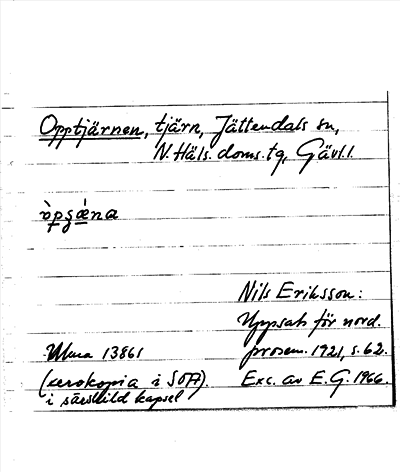 Opptjärnen, tjärn, Jättendals sn,
N. Häls. doms. tg, Gävl.l.
òpşǽna
Nils Eriksson:
Uppsats för nord.
Ulma 13861 prosem. 1921, s. 62.
(xerokopia i SOA). Exc. av E.G. 1966.
i särskild kapsel